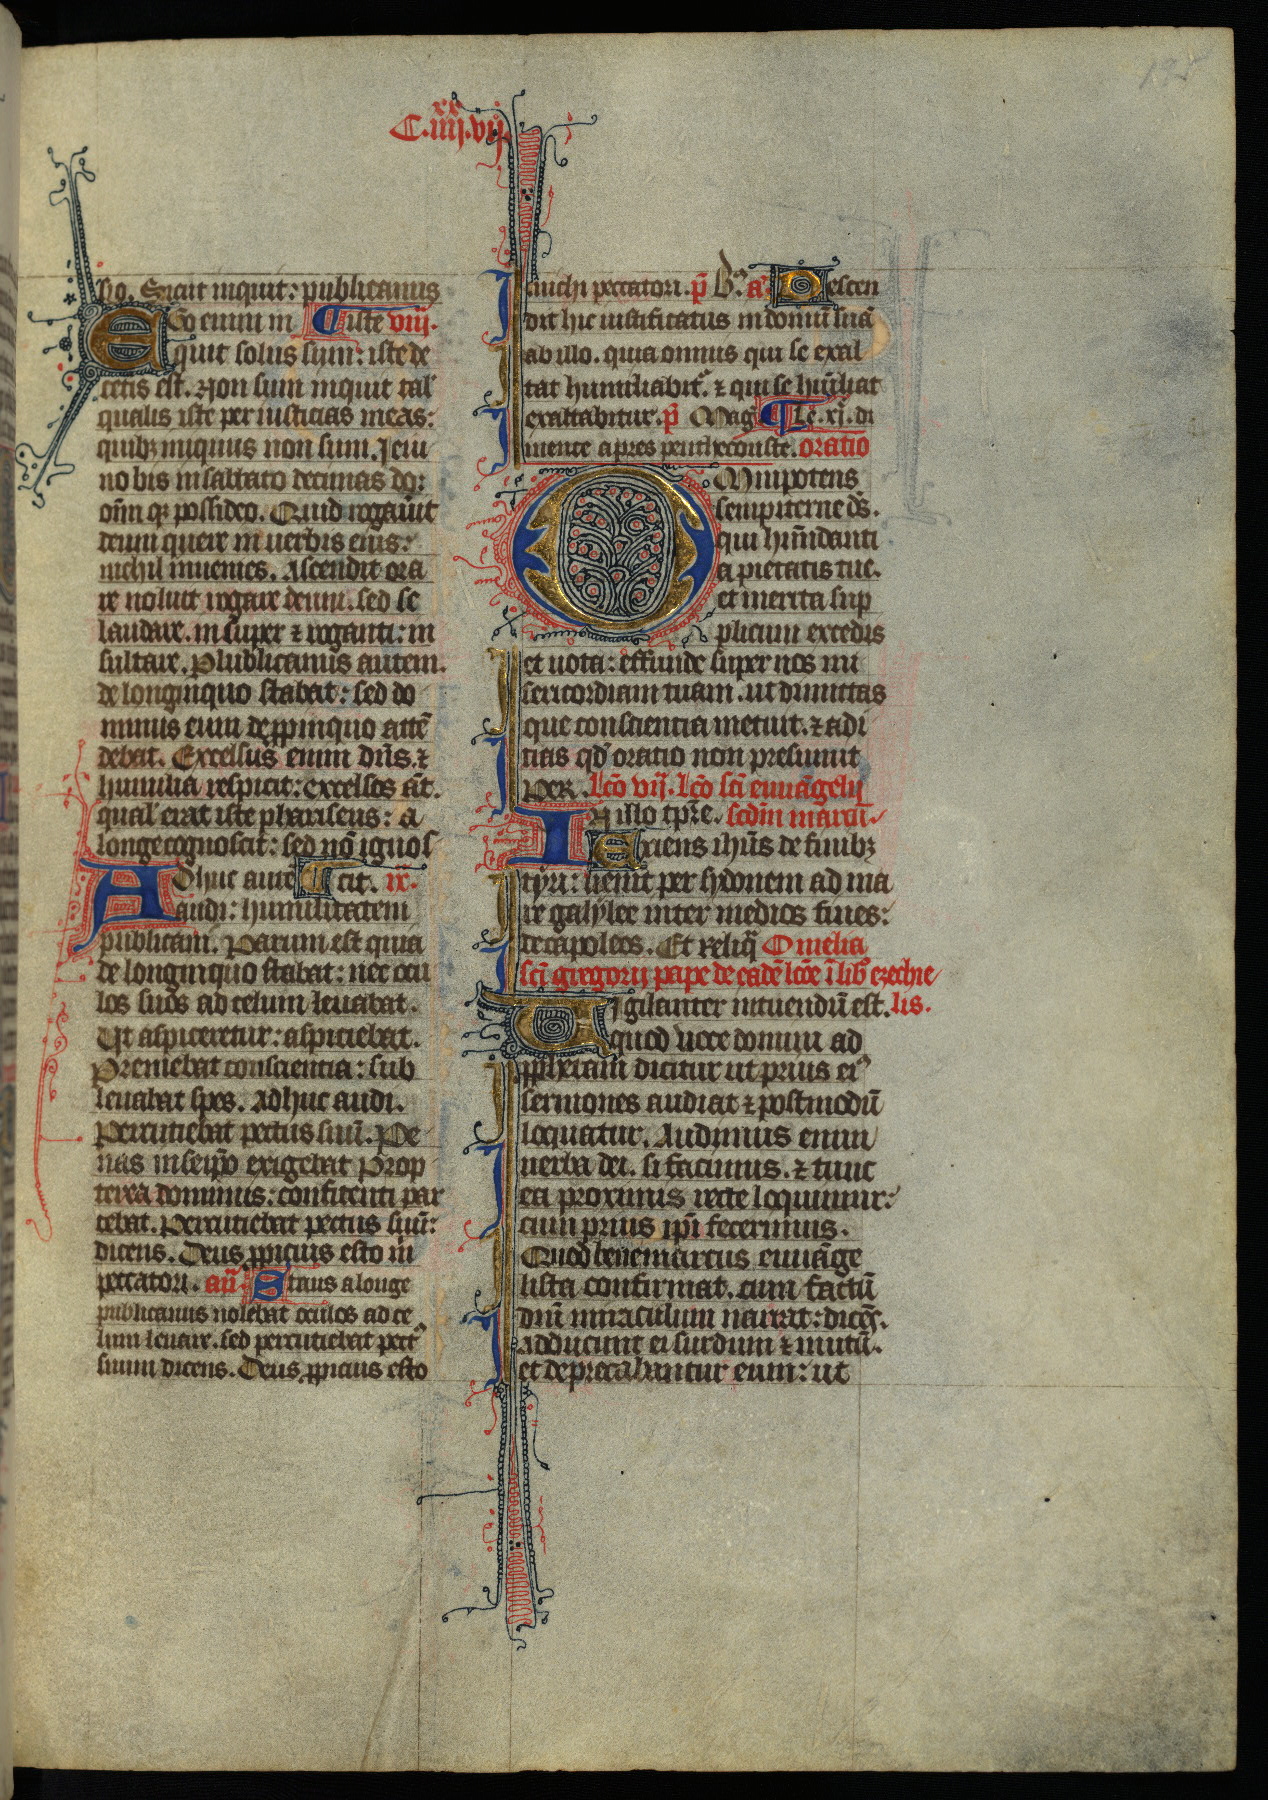 C.iiij.xx.vij.
195
lio. Sicut inquit: publicanus
Ego enim in iste viij.
quit solus sum: iste de
cetis est. Non sum inquit tal'
qualis iste per iusticias meas:
quibꝫ iniquus non sum. Jeiu
no bis in sabbato decimas do:
oīm qꝫ possideo. Quid rogauit
deum quere in uerbis eius:
nichil inuenies. Ascendit ora
re noluit rogare deum. sed se
laudare. in super ⁊ roganti: in
sultare. Publicanus autem.
de longinquo stabat: sed do
minus eum de ꝓpinquo attē
debat. Excelsus enim dn̄s. ⁊
humilia respicit: excelsos aūt.
qual' erat iste phariseus: a
longe cognoscit: sed nō ignos
Adhuc aute cit. ix.
audi: humilitatem
publicani. Parum est quia
de longinquo stabat: nec ocu
los suos ad celum leuabat.
Ut aspiceretur: aspiciebat.
Premebat consciencia: sub
leuabat spes. Adhuc audi.
Percutiebat pectus suū. Pe
nas in seip̄o exigebat Prop
terea dominus: confitenti par
cebat. Percutiebat pectus suū:
dicens. Deus ꝓpicius esto m̄
peccatori. añ. Stans a longe
publicanus nolebat oculos ad ce
lum leuare. sed percutiebat pect'
suum dicens. Deus ꝓpicius esto
michi peccatori. p̄ B'. a. Descen
dit hic iustificatus in domū suā
ab illo. quia omnis qui se exal
tat humiliabit'. ⁊ qui se hūiliat
exaltabitur. p̄ Mag̃ Le .xj. di
mence apres penthecouste. oratio
Omnipotens
sempiterne ds̄.
qui habūdanti
a pietatis tue.
et merita sup
plicum excedis
et uota: effunde super nos mi
sericordiam tuam. ut dimittas
que conscientia metuit. ⁊ adi
cias qd' oratio non presumit
Per. Lcō vij. Lcō sc̄i euuāgelij
In illo tp̄re. scdm̄ marcū.
Exiens ih̄us de finibꝫ
tyri: uenit per sydonem ad ma
re galylee inter medios fines:
decapoleos. Et reliq̄ Omelia
sc̄i gregorij pape de eadē lcōe ī lib' ezechie
lis.
Vigilanter intuendū est.
quod uoce domini ad
ꝓphetam dicitur ut prius ei'
sermones audiat ⁊ postmodū
loquatur. Audimus enim
uerba dei. si facimus. ⁊ tunc
ea proximis recte loquimur:
cum prius ip̄i fecerimus.
Quod bene marcus euuāge
lista confirmat. cum factū
dn̄i miraculum narrat: dicēs.
adducunt ei surdum ⁊ mutū.
et deprecabantur eum: ut